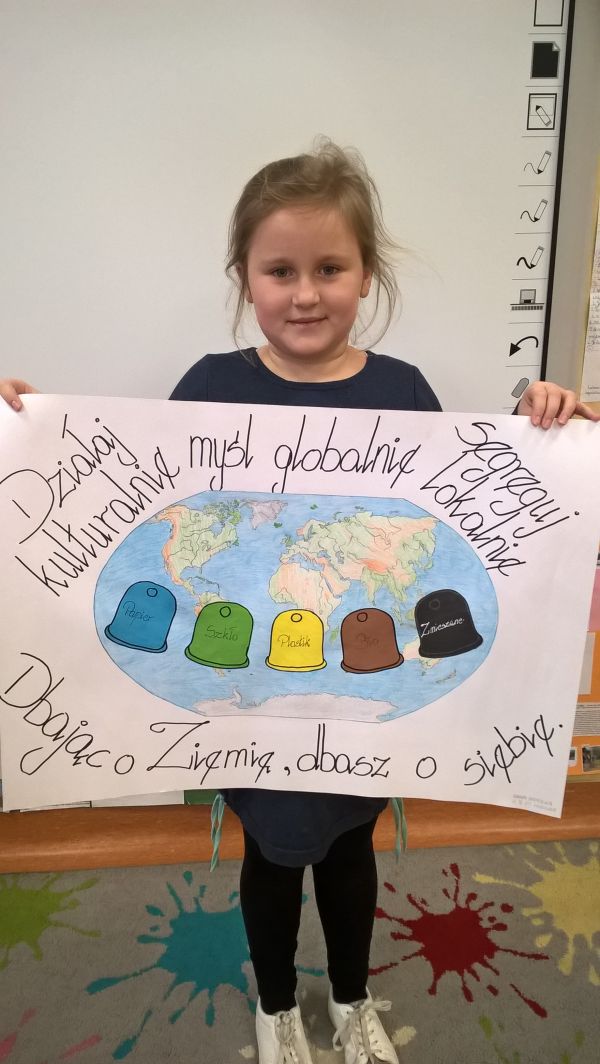 Działaj
kulturalnie myśl globalnie segreguj
lokalnie
Papier
Szkło
Plastik
Bio
Zmieszane
Dbając o Ziemię, dbasz o siebie.